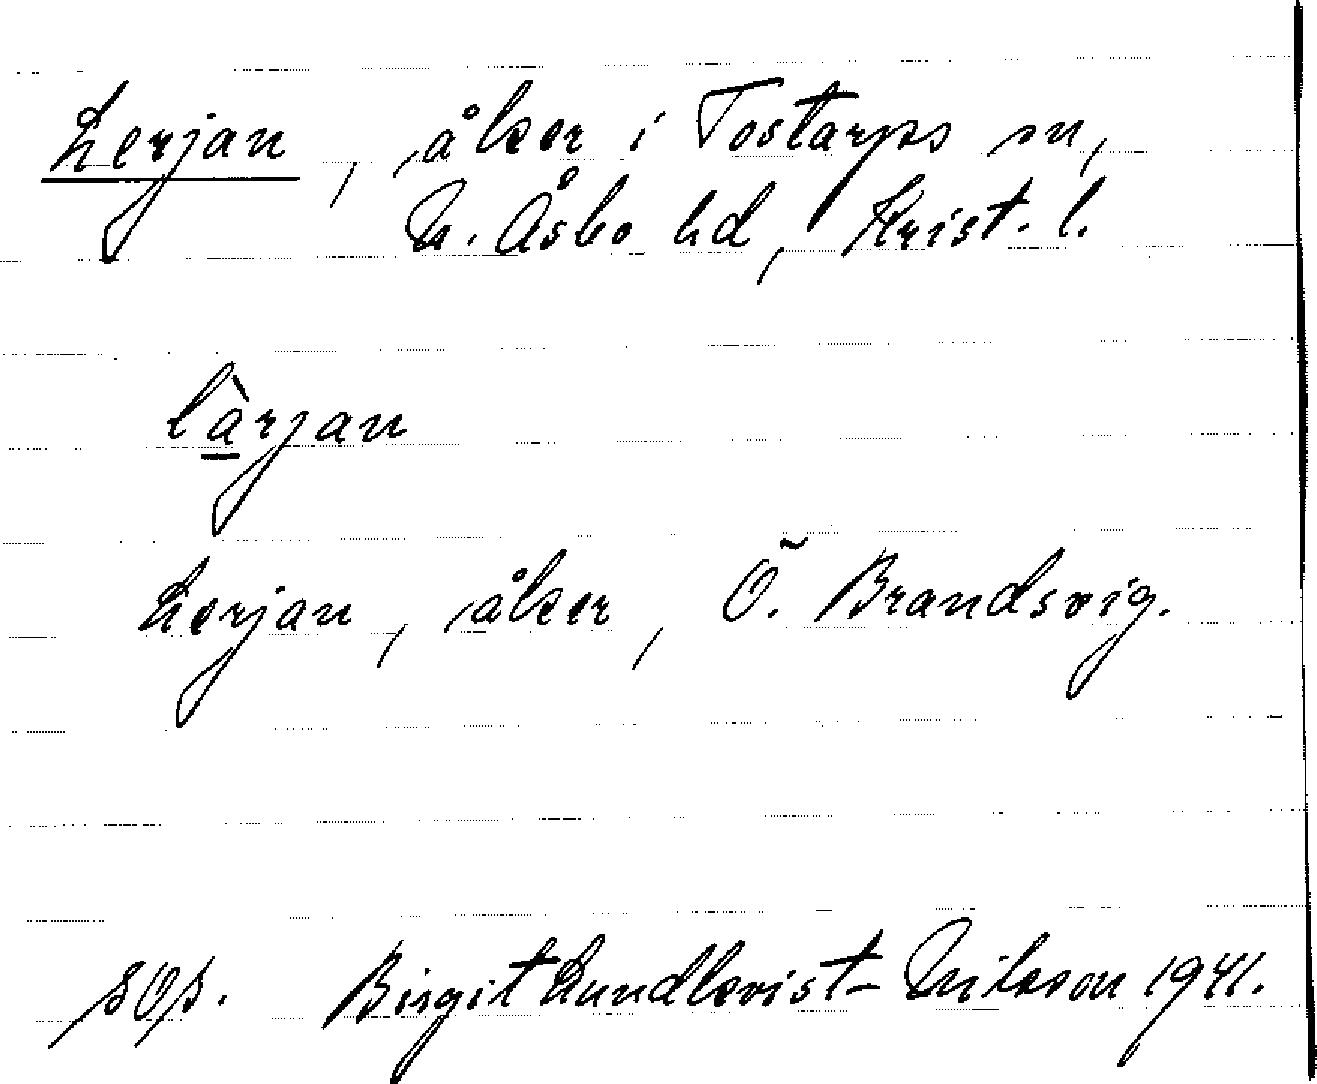 Lerjan, åker i Tostarps sn,
N. Åsbo hd, Krist. l.
làrjan
Lerjan, åker, Ö. Brandsvig.
sop. Birgit Lundkvist-Nilsson 1941.